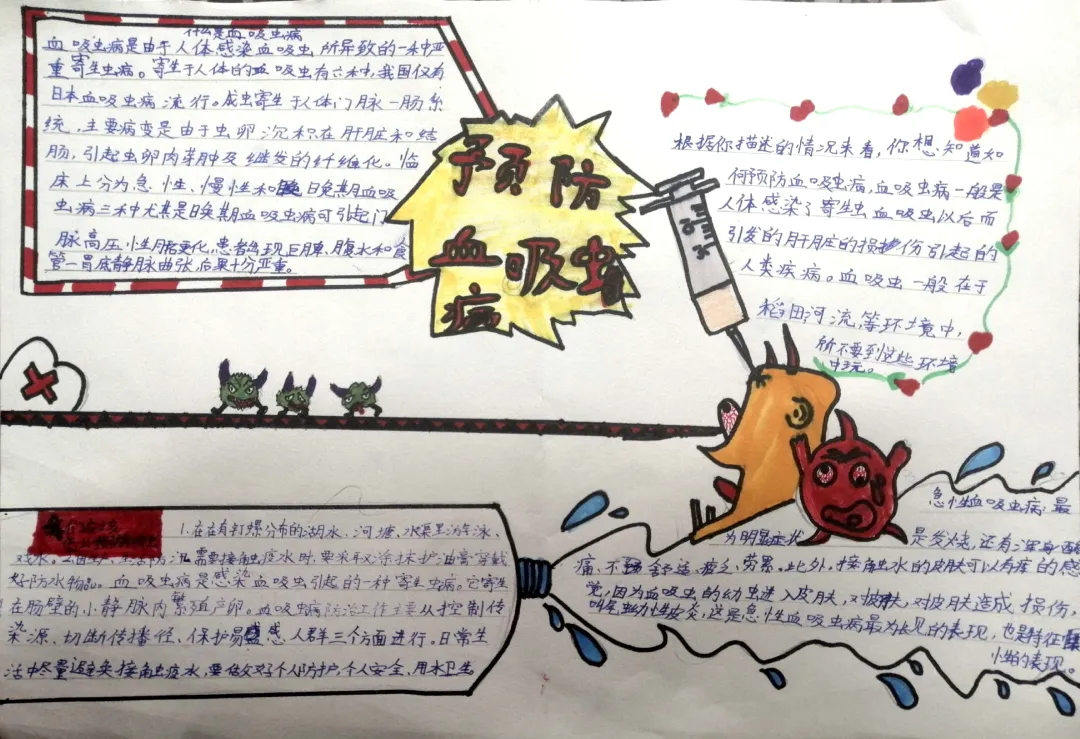 什么是血吸虫病
血吸虫病是由于人体感染血吸虫所导致的一种严
重寄生虫病。寄生于人体的血吸虫有六种,我国仅有
日本血吸虫病流行。成虫寄生于人体门脉一肠系
统,主要病变是由于虫卵沉积在肝脏和结
肠,引起虫卵肉芽肿及继发的纤维化。临
床上分为急性、慢性和晚期血吸
虫病三种尤其是晚期血吸虫病可引起门
脉高压性 患者出现巨脾,腹水和食
管一胃底静脉曲张,后果十分严重。
预防
血吸虫
病
根据你描述的情况来看,你想知道如
何预防血吸虫病,血吸虫病一般是
人体感染了寄生虫血吸虫以后而
引发的肝脏的损伤引起的
人类疾病。血吸虫一般在于
稻田河流,等环境中,
所不要到这些环境
中玩。
1.在在有钉螺分布的湖水、河塘、水渠里游泳、
戏水。 需要接触疫水时,要采取涂抹护油膏穿戴
好防水物品。血吸虫病是感染血吸虫引起的一种寄生虫病。它寄生
在肠壁的小静脉内繁殖产卵。血吸虫病防治工作主要从控制传
染源、切断传播途径、保护易感人群三个方面进行。日常生
活中尽量避免接触虫疫水,要做好个人防护,个人安全,用水卫生
急性血吸虫病:最
为明显症状 是发烧,还有浑身
痛、不 舒适、疲乏、劳累。此外,接触水的皮肤可以有痒的感
觉,因为血吸虫的幼虫进入皮肤,对皮肤,对皮肤造成损伤,
叫尾虫幼性皮炎,这是急性血吸虫病最为长见的表现,也是特征
性的表现。